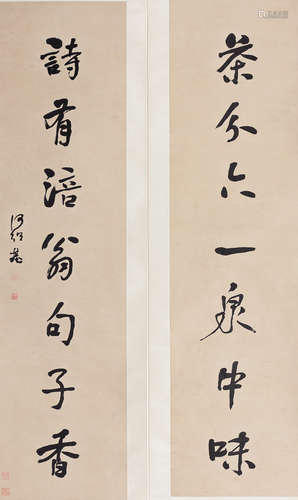 茶分六一泉中味
詩有涪翁句子香
何紹基